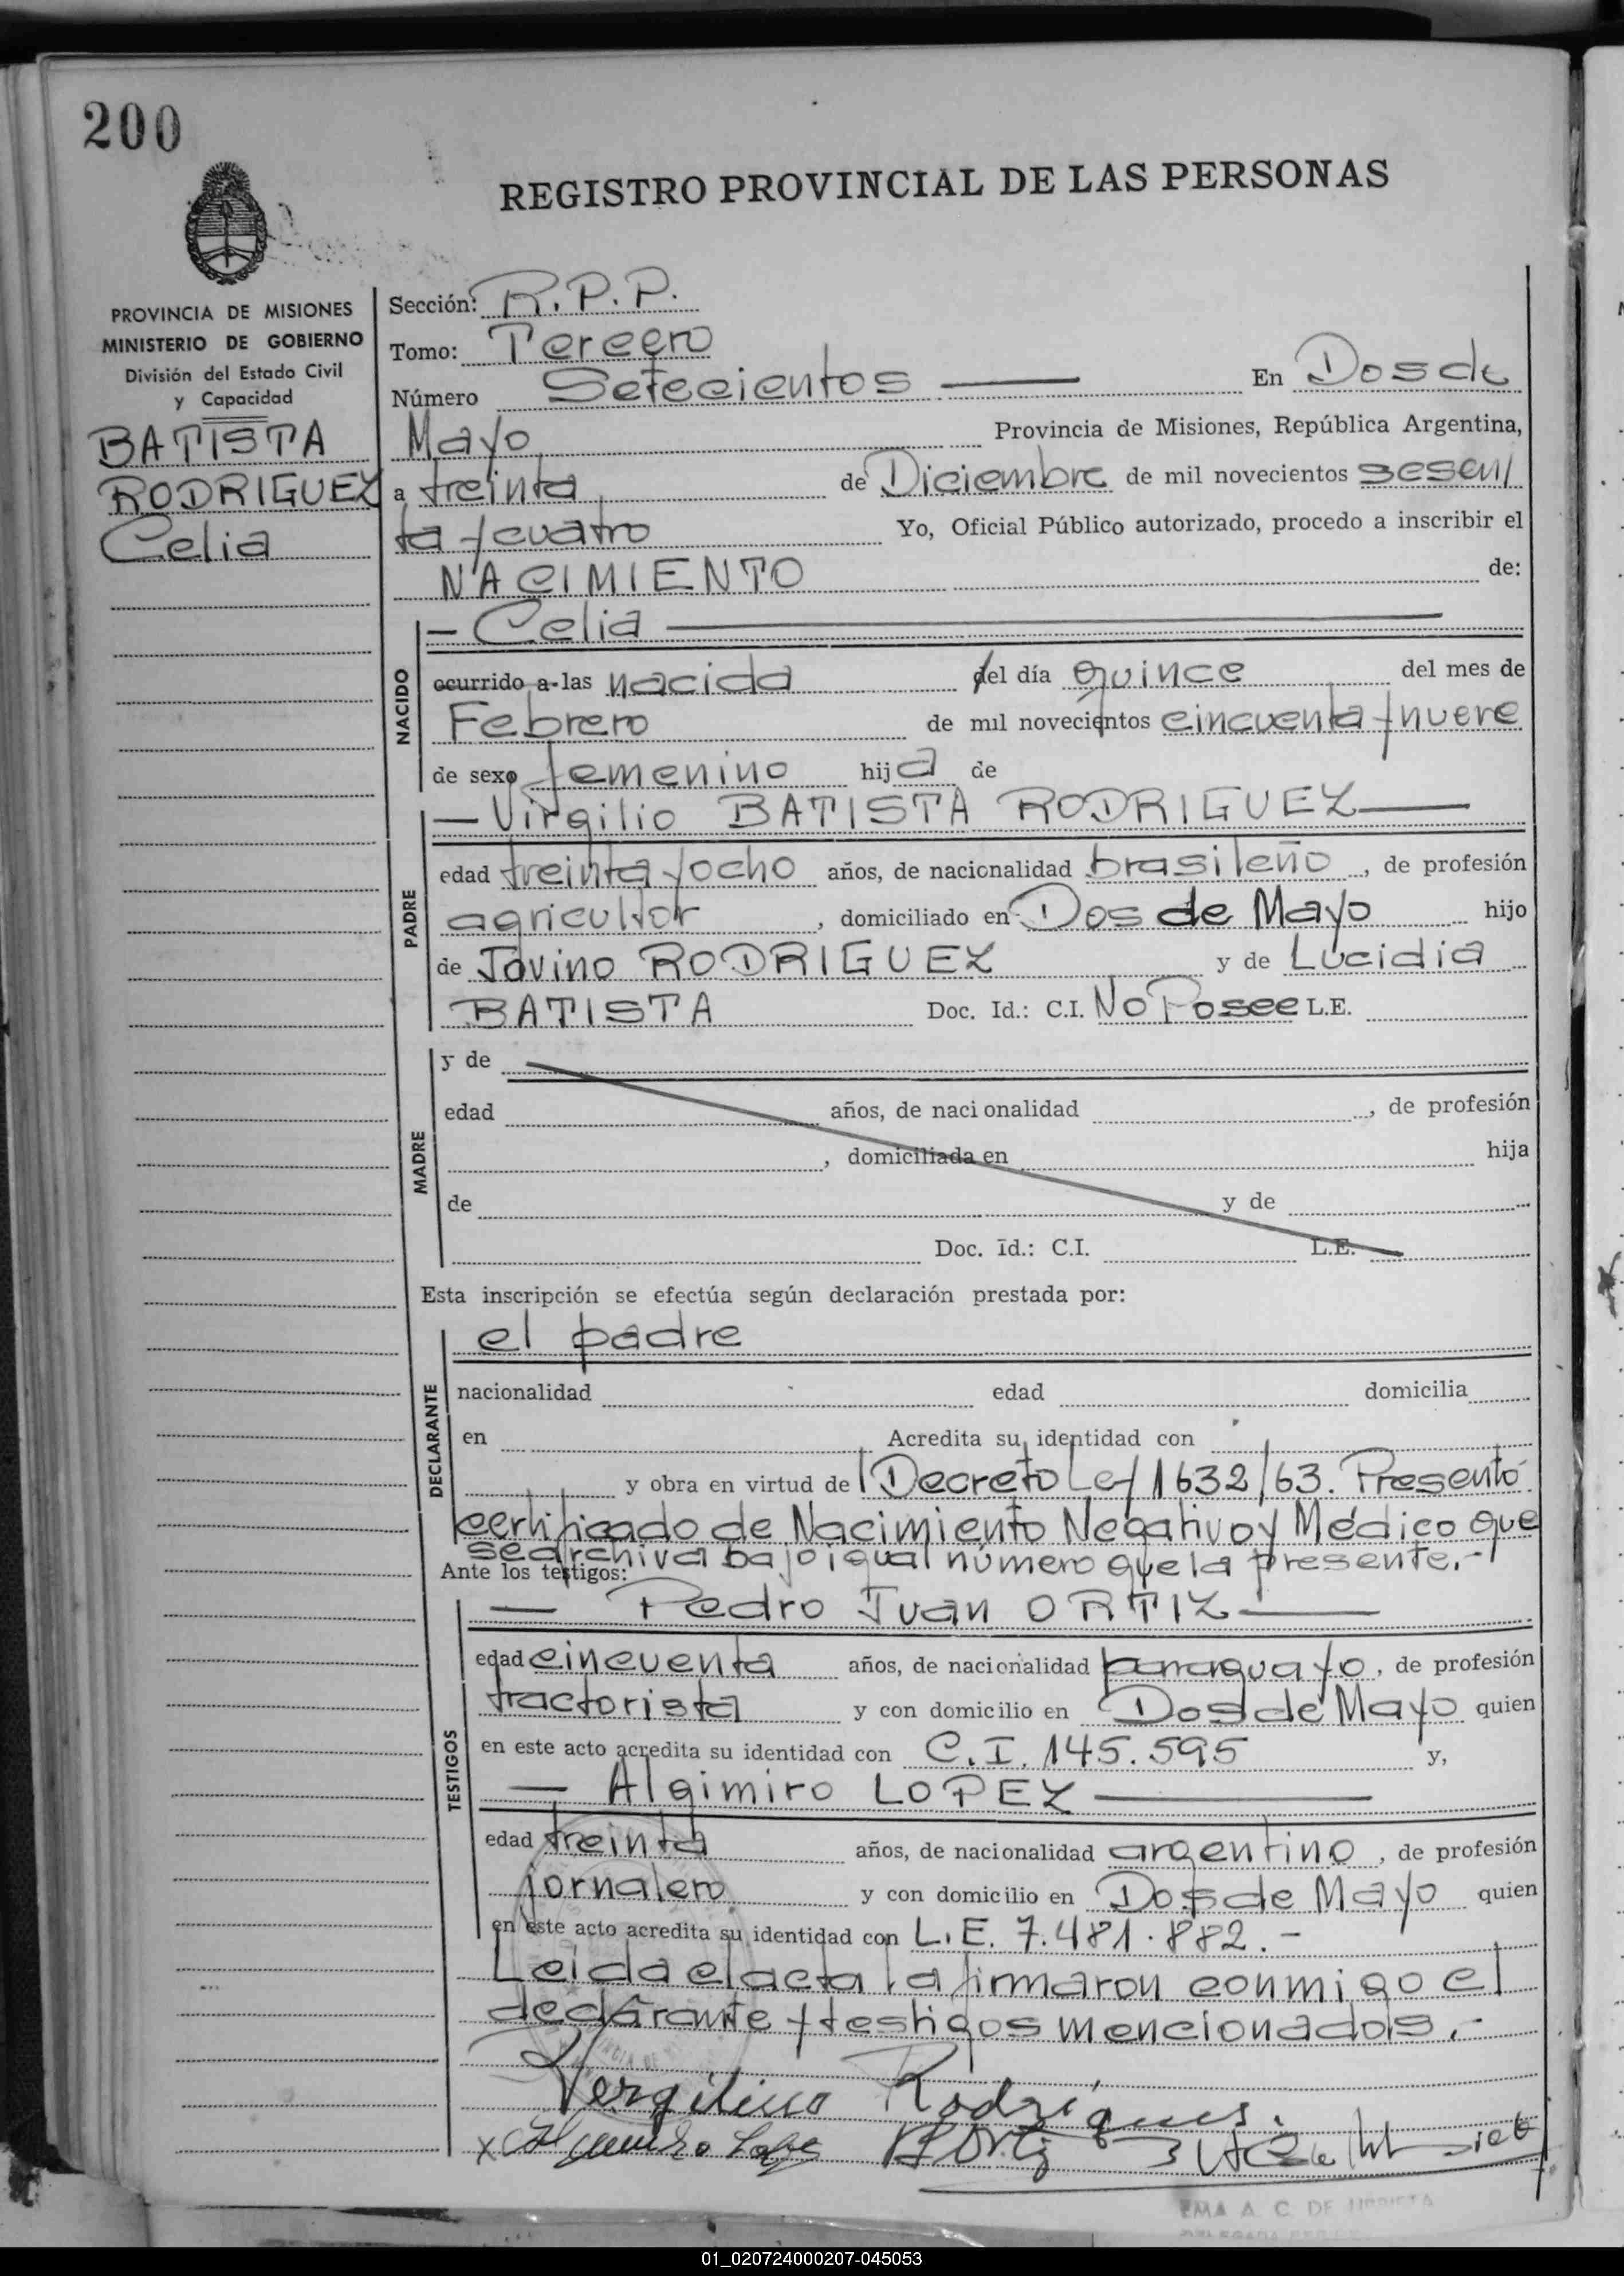 200
REGISTRO PROVINCIAL DE LAS PERSONAS
PROVINCIA DE MISIONES
MINISTERIO DE GOBIERNO
División del Estado Civil
y Capacidad
BATISTA
RODRIGUEZ
Celia
Sección: R.P.P.
Tomo: Tercero
Número Setecientos En Dos de
Mayo Provincia de Misiones, República Argentina,
a treinta de Diciembre de mil novecientos sesen/
ta y cuatro Yo, Oficial Público autorizado, procedo a inscribir el
NACIMIENTO de:
NACIDO
- Celia
ocurrido a las nacida del día quince del mes de
Febrero de mil novecientos cincuenta y nueve
de sexo femenino hija de
PADRE
- Virgilio BATISTA RODRIGUEZ
edad treinta y ocho años, de nacionalidad brasileño, de profesión
agricultor, domiciliado en Dos de Mayo hijo
de Jovino RODRIGUEZ y de Lucidia
BATISTA Doc. Id.: C.I. No Posee L.E.
MADRE
y de
edad años, de nacionalidad, de profesión
, domiciliada en hija
de y de
Doc. Id.: C.I. L.E.
Esta inscripción se efectúa según declaración prestada por:
DECLARANTE
el padre
nacionalidad edad domicilia
en Acredita su identidad con
y obra en virtud de Decreto Ley 1632/63. Presentó
certificado de Nacimiento Negativo y Médico que
se archiva bajo igual número que la presente.-
Ante los testigos:
TESTIGOS
- Pedro Juan ORTIZ
edad cincuenta años, de nacionalidad paraguayo, de profesión
tractorista y con domicilio en Dos de Mayo quien
en este acto acredita su identidad con C.I. 145.595 y,
- Algimiro LOPEZ
edad treinta años, de nacionalidad argentino, de profesión
jornalero y con domicilio en Dos de Mayo quien
en este acto acredita su identidad con L.E. 7.481.882.-
Leida el acta la firmaron conmigo el
declarante y testigos mencionados.-
Rodrigues.
EMA A. C. DE URRIETA
01_020724000207-045053